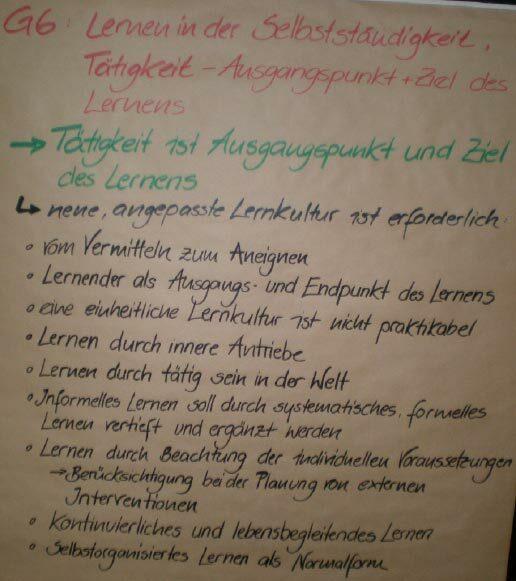 G6: Lernen in der Selbstständigkeit,
Tätigkeit - Ausgangspunkt + Ziel des
Lernens
→ Tätigkeit ist Ausgangspunkt und Ziel
des Lernens
↳ neue, angepasste Lernkultur ist erforderlich:
• vom Vermitteln zum Aneignen
• Lernender als Ausgangs- und Endpunkt des Lernens
• eine einheitliche Lernkultur ist nicht praktikabel
• Lernen durch innere Antriebe
• Lernen durch tätig sein in der Welt
• Informelles Lernen soll durch systematisches, formelles
Lernen vertieft und ergänzt werden
• Lernen durch Beachtung der individuellen Voraussetzungen
→ Berücksichtigung bei der Planung von externen
Interventionen
• Kontinuierliches und lebensbegleitendes Lernen
• Selbstorganisiertes Lernen als Normalform